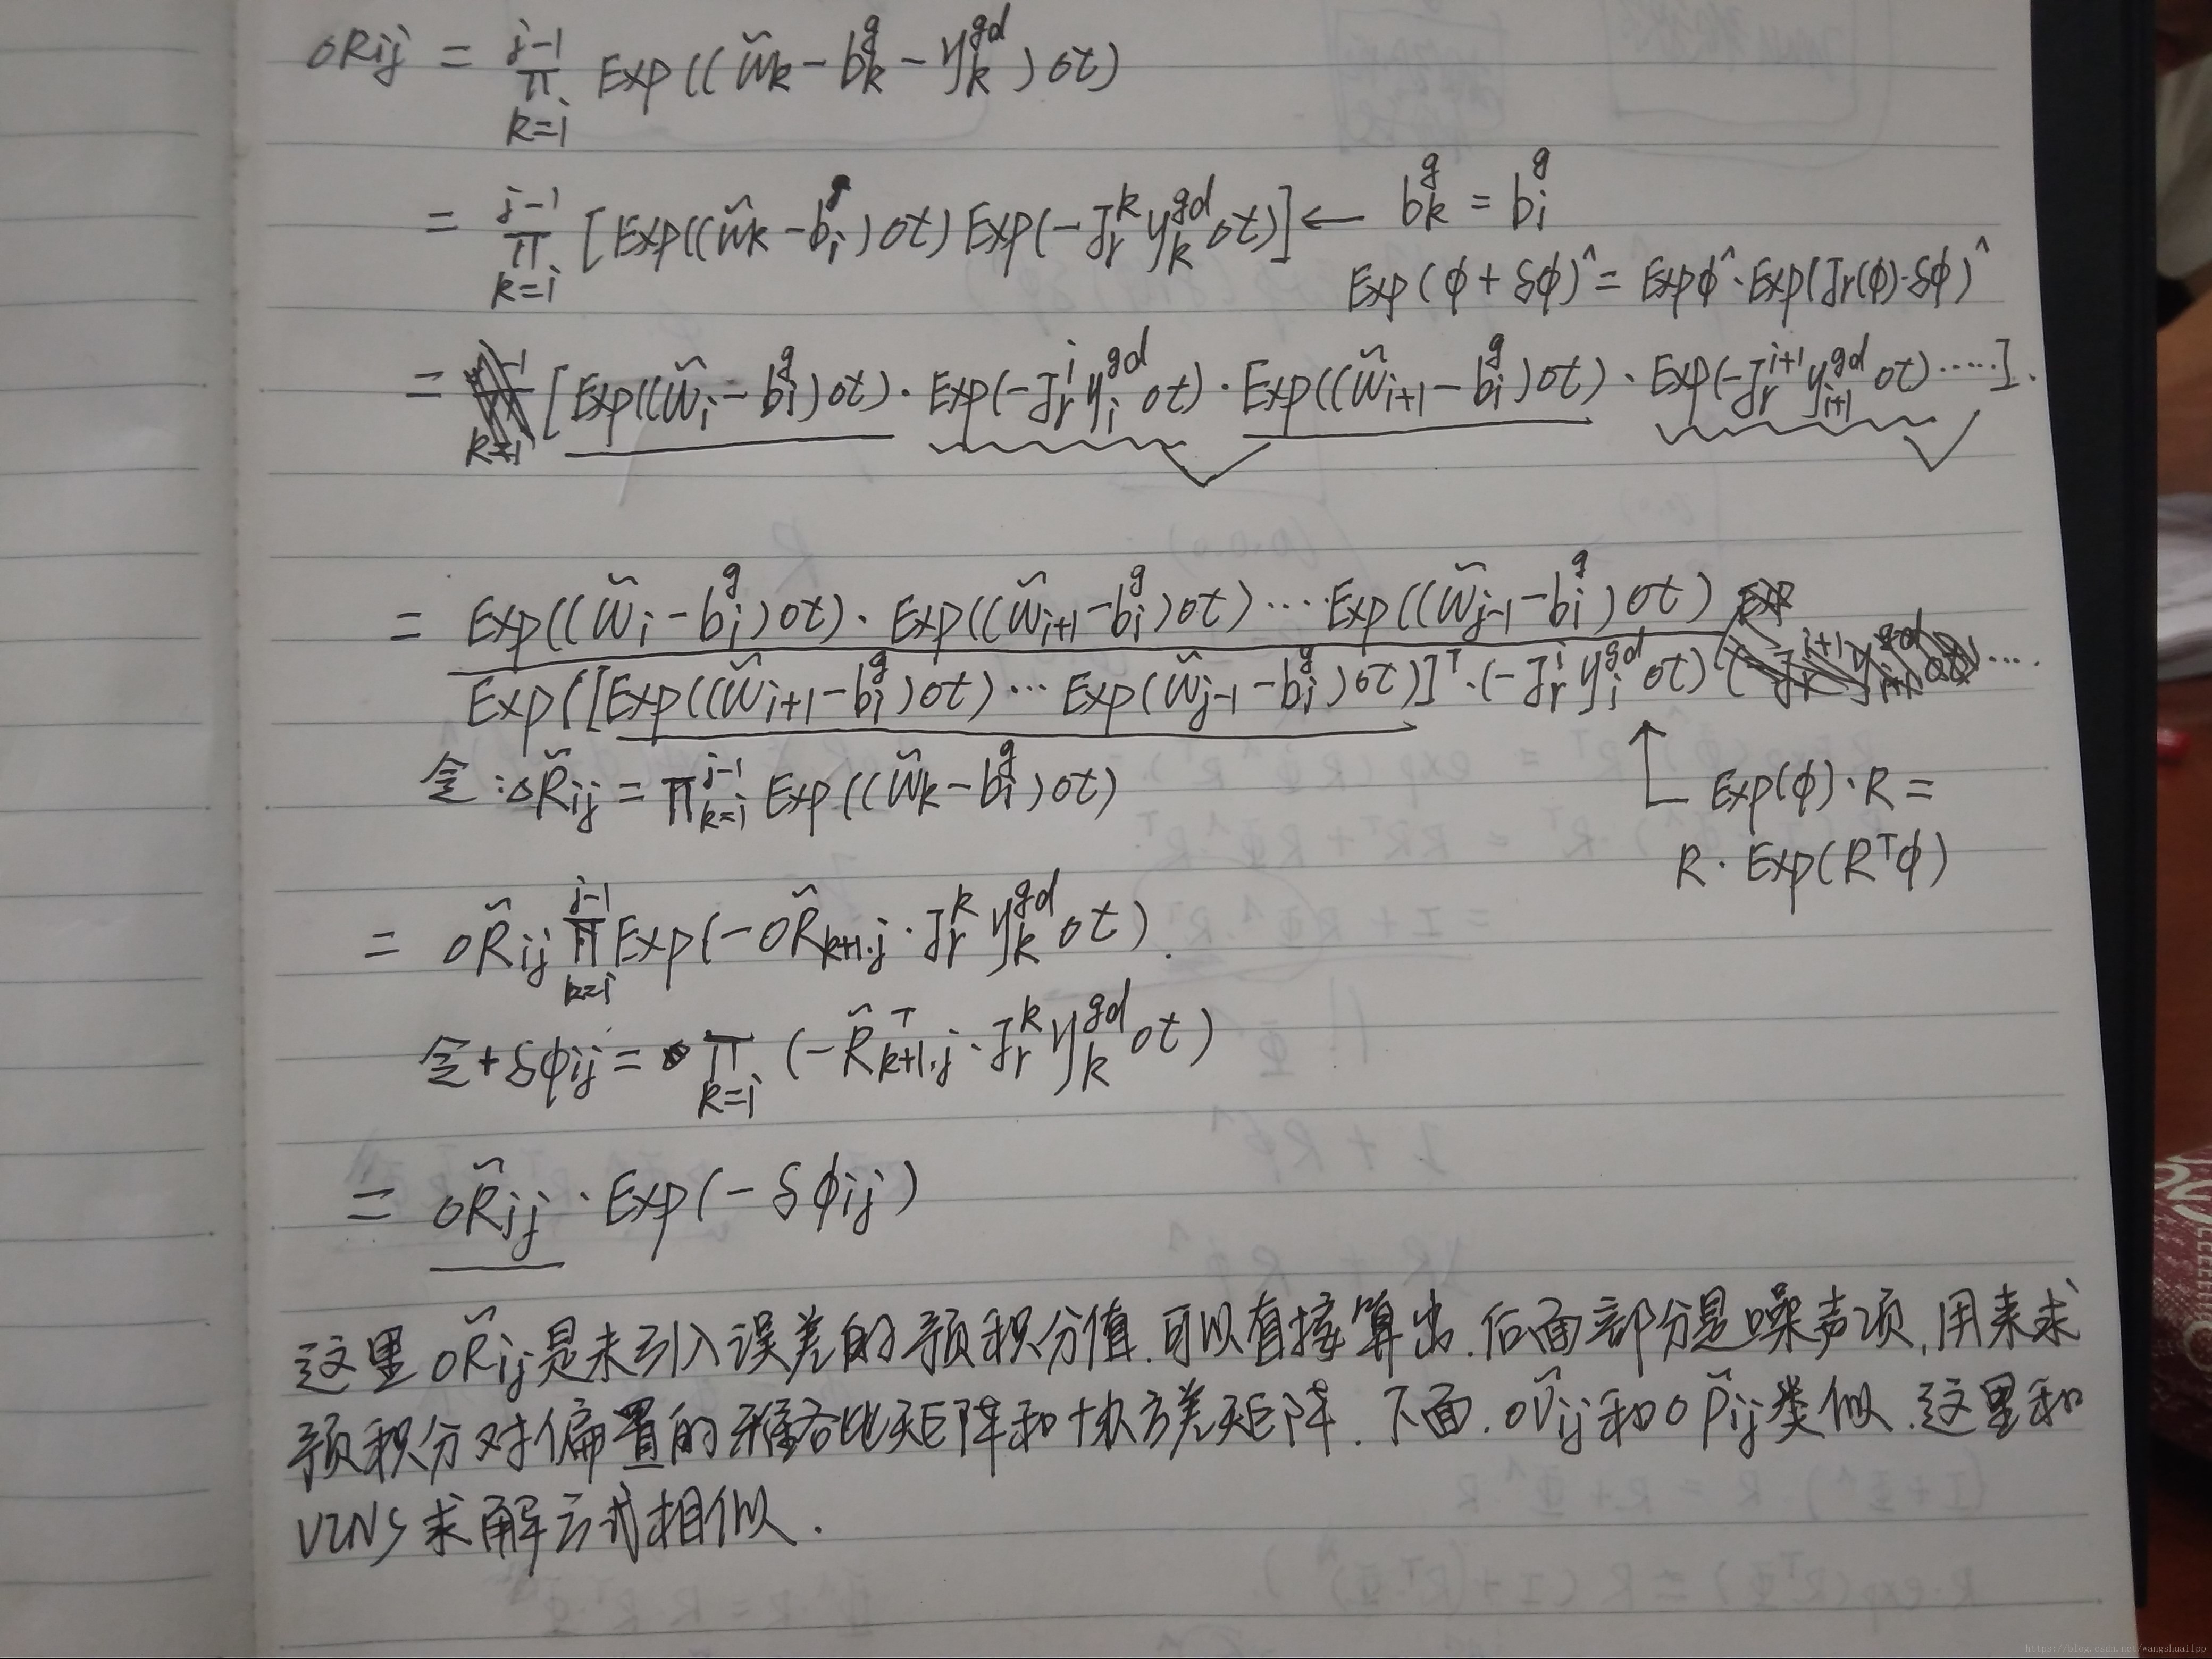 ΔRij = ∏_{k=i}^{j-1} Exp((w̃k - b_k^g - η_k^{gd})Δt)
= ∏_{k=i}^{j-1} [Exp((w̃k - b_i^g)Δt) Exp(-J_r^k η_k^{gd} Δt)] ← b_k^g = b_i^g
Exp(φ + δφ)^ = Expφ^ · Exp(Jr(φ)·δφ)^
= [Exp((w̃i - b_i^g)Δt) · Exp(-J_r^i η_i^{gd} Δt) · Exp((w̃i+1 - b_i^g)Δt) · Exp(-J_r^{i+1} η_{i+1}^{gd} Δt) ⋯⋯].
= Exp((w̃i - b_i^g)Δt) · Exp((w̃i+1 - b_i^g)Δt) ⋯ Exp((w̃j-1 - b_i^g)Δt)
Exp([Exp((w̃i+1 - b_i^g)Δt) ⋯ Exp(w̃j-1 - b_i^g)Δt)]^T · (-J_r^i η_i^{gd} Δt) ⋯
令: ΔR̃ij = ∏_{k=i}^{j-1} Exp((w̃k - b_i^g)Δt)
Exp(φ)·R =
R · Exp(R^Tφ)
= ΔR̃ij ∏_{k=i}^{j-1} Exp(-ΔR̃k+1·j · J_r^k η_k^{gd} Δt).
令+δφij = ∏_{k=i} (-R̃_{k+1·j}^T · J_r^k η_k^{gd} Δt)
= ΔR̃ij · Exp(-δφij)
这里ΔR̃ij是未引入误差的预积分值.可以直接算出.后面部分是噪声项,用来求
预积分对偏置的雅各比矩阵和协方差矩阵.下面.ΔṼij和ΔP̃ij类似.这里和
VINS求解方式相似.
https://blog.csdn.net/wangshuailpp